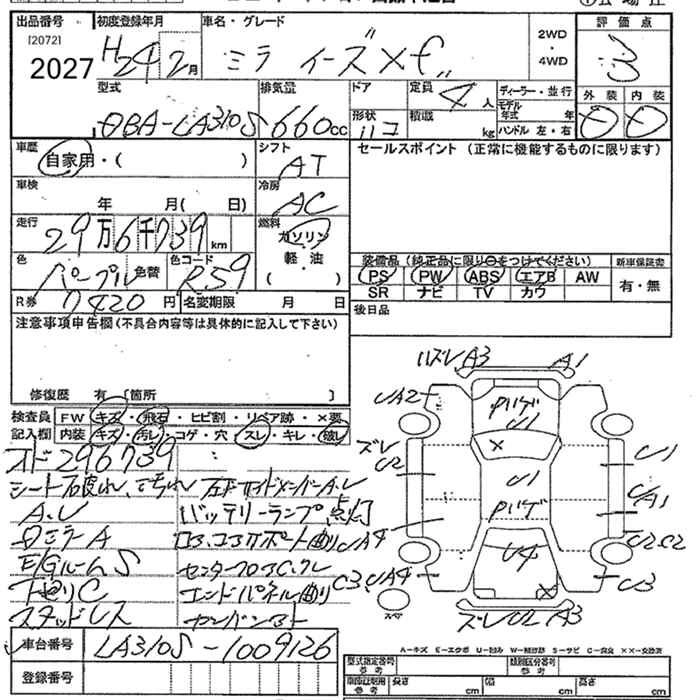 出品番号 初度登録年月 車名・グレード 評価点
[2072]
2027 H24 2月 ミラ イーズ Xf 2WD ・ 4WD 3
型式 排気量 ドア 定員 4人 ディーラー・並行 外装 内装
モデル年式 年
DBA-LA310S 660cc 形状 ハコ 積載 kg ハンドル 左・右
車歴 シフト セールスポイント (正常に機能するものに限ります)
自家用・( ) AT
車検 冷房
年 月( 日) AC
走行 燃料
29万6千739km ガソリン
色 色替 色コード 軽・油 装備品 (純正品に限り○をつけてください) 新車保証書
パープル R59 ( ) PS PW ABS エアB AW 有・無
SR ナビ TV カワ
R券 7420円 名変期限 月 日 後日品
注意事項申告欄(不具合内容等は具体的に記入して下さい)
修復歴 有〔箇所 〕
検査員 FW キズ・飛石・ヒビ割・リペア跡・×要
記入欄 内装 キズ・汚レ・コゲ・穴・スレ・キレ・破レ
オド296739
シート破れ、汚れ
A.U バッテリーランプ点灯
ロミラーA
E/GルームS
下廻りC エンドパネル曲り
スタッドレス
車台番号 LA310S-1009126
登録番号
ハズレA3 A1
UA2
Pハゲ
U1
×
ズレ
U2
U1
U1
Pハゲ
UA1
UA4
U4
U2C2
C3、UA4
U3
スペア
ズレU2 A3
A-キズ E-エクボ U-凹み W-補修跡 S-サビ C-腐食 ××-交換済
型式指定番号 参考 類別区分番号 参考
車庫証明用 参考 長さ cm 幅 cm 高さ cm